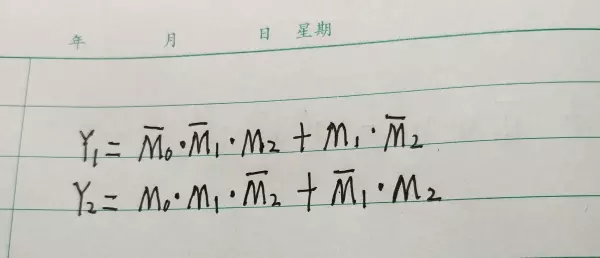 年 月 日 星期
Y₁ = M̅₀·M̅₁·M₂ + M₁·M̅₂
Y₂ = M₀·M₁·M̅₂ + M̅₁·M₂